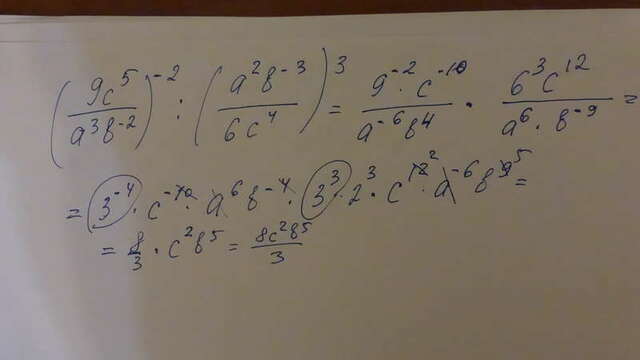 (9c⁵/a³b⁻²)⁻² : (a²b⁻³/6c⁴)³ = 9⁻²·c⁻¹⁰/a⁻⁶b⁴ · 6³c¹²/a⁶·b⁻⁹ =
= 3⁻⁴·c⁻¹⁰·a⁶b⁻⁴·3³·2³·c¹²²·a⁻⁶b⁹⁵ =
= 8/3·c²b⁵ = 8c²b⁵/3